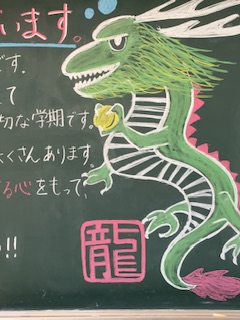 います。
です。
て
切な学期です。
たくさんあります。
る心をもって、
!!
龍